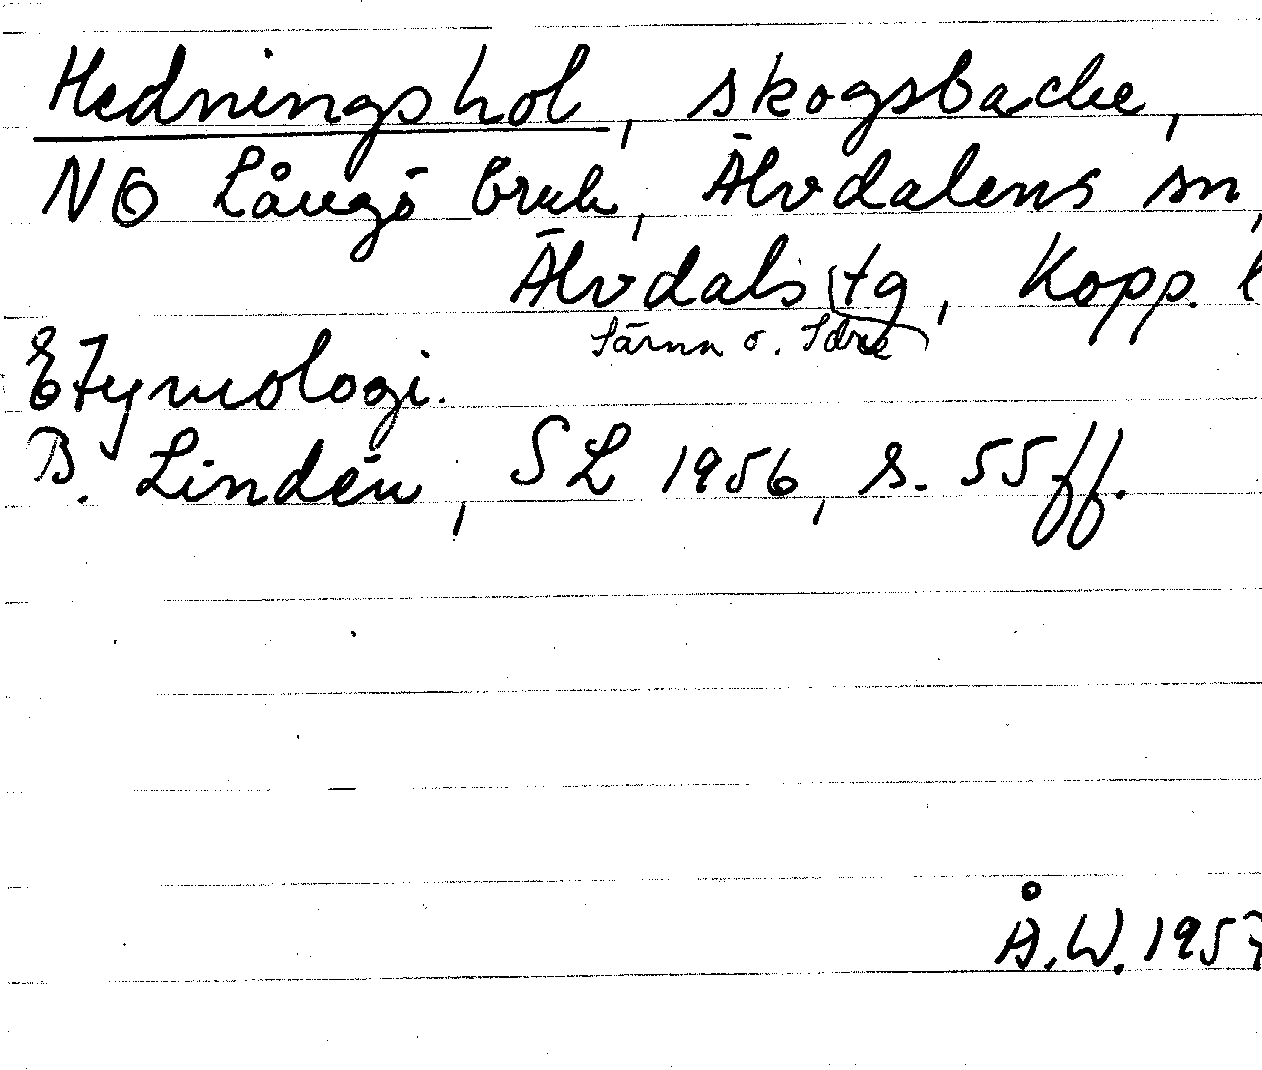 Hedningshol, skogsbacke,
NÖ Långö bruk, Älvdalens sn,
Älvdals tg, Kopp. l
Särna o. Idre
Etymologi.
B. Lindén, SL 1956, s. 55 ff.
Å.W. 1957